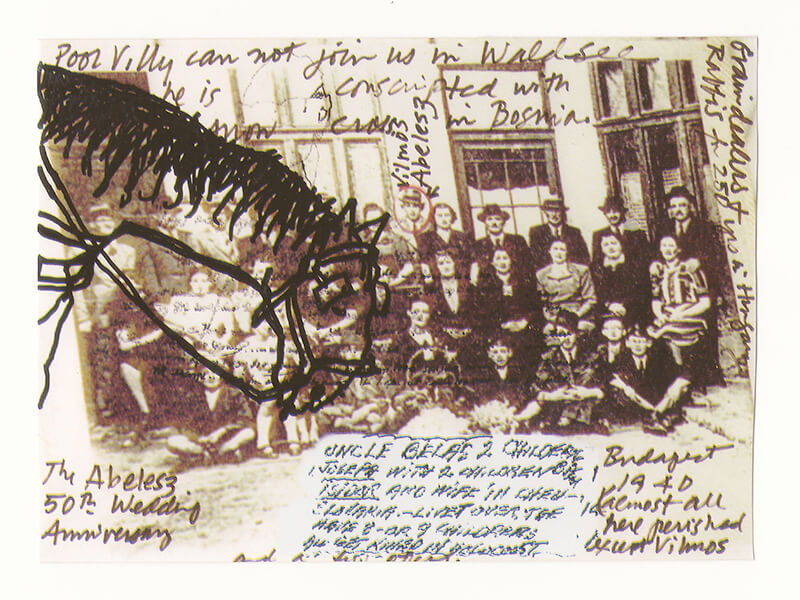 Poor Villy can not join us in Waldsee
he is conscripted with
cross in Bosnia.
Vilmos
Abelesz
Graindealers
Rabbis
250 yrs in Hungary
The Abelesz
50th Wedding
Anniversary
UNCLE BELAE 2 CHILDREN
JOSEPH WITH 2 CHILDREN
AND WIFE IN CHEV-
SLOVAKIA - LIVET OVER THE
HAVE 8 OR 9 CHILDRENS
ALL GET KILLED IN HOLOCOST
Budapest
1940
Allmost all
here perished
except Vilmos